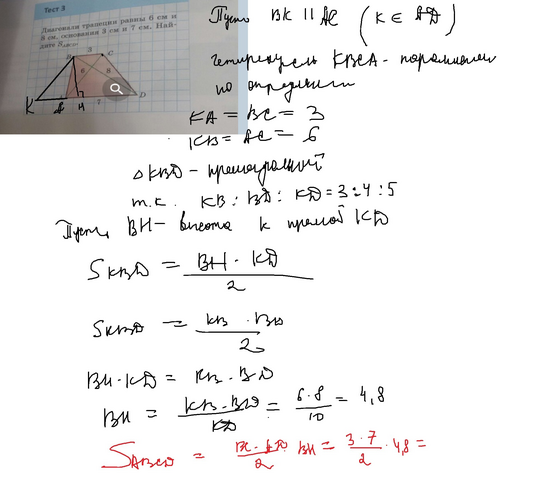 Тест 3
Диагонали трапеции равны 6 см и
8 см, основания 3 см и 7 см. Най-
дите S
3 C
6 8
K A H 7 D
Пусть BK || AC (K ∈ AD)
четырехуг KBCA - параллел
по определ
KA = BC = 3
KB = AC = 6
△KBD - прямоугольный
т.к. KB : BD : KD = 3:4:5
Пусть BH - высота к прямой KD
S KBD = BH · KD / 2
S KBD = KB · BD / 2
BH · KD = KB · BD
BH = KB · BD / KD = 6·8 / 10 = 4,8
S ABCD = BC · AD / 2 BH = 3 · 7 / 2 · 4,8 =